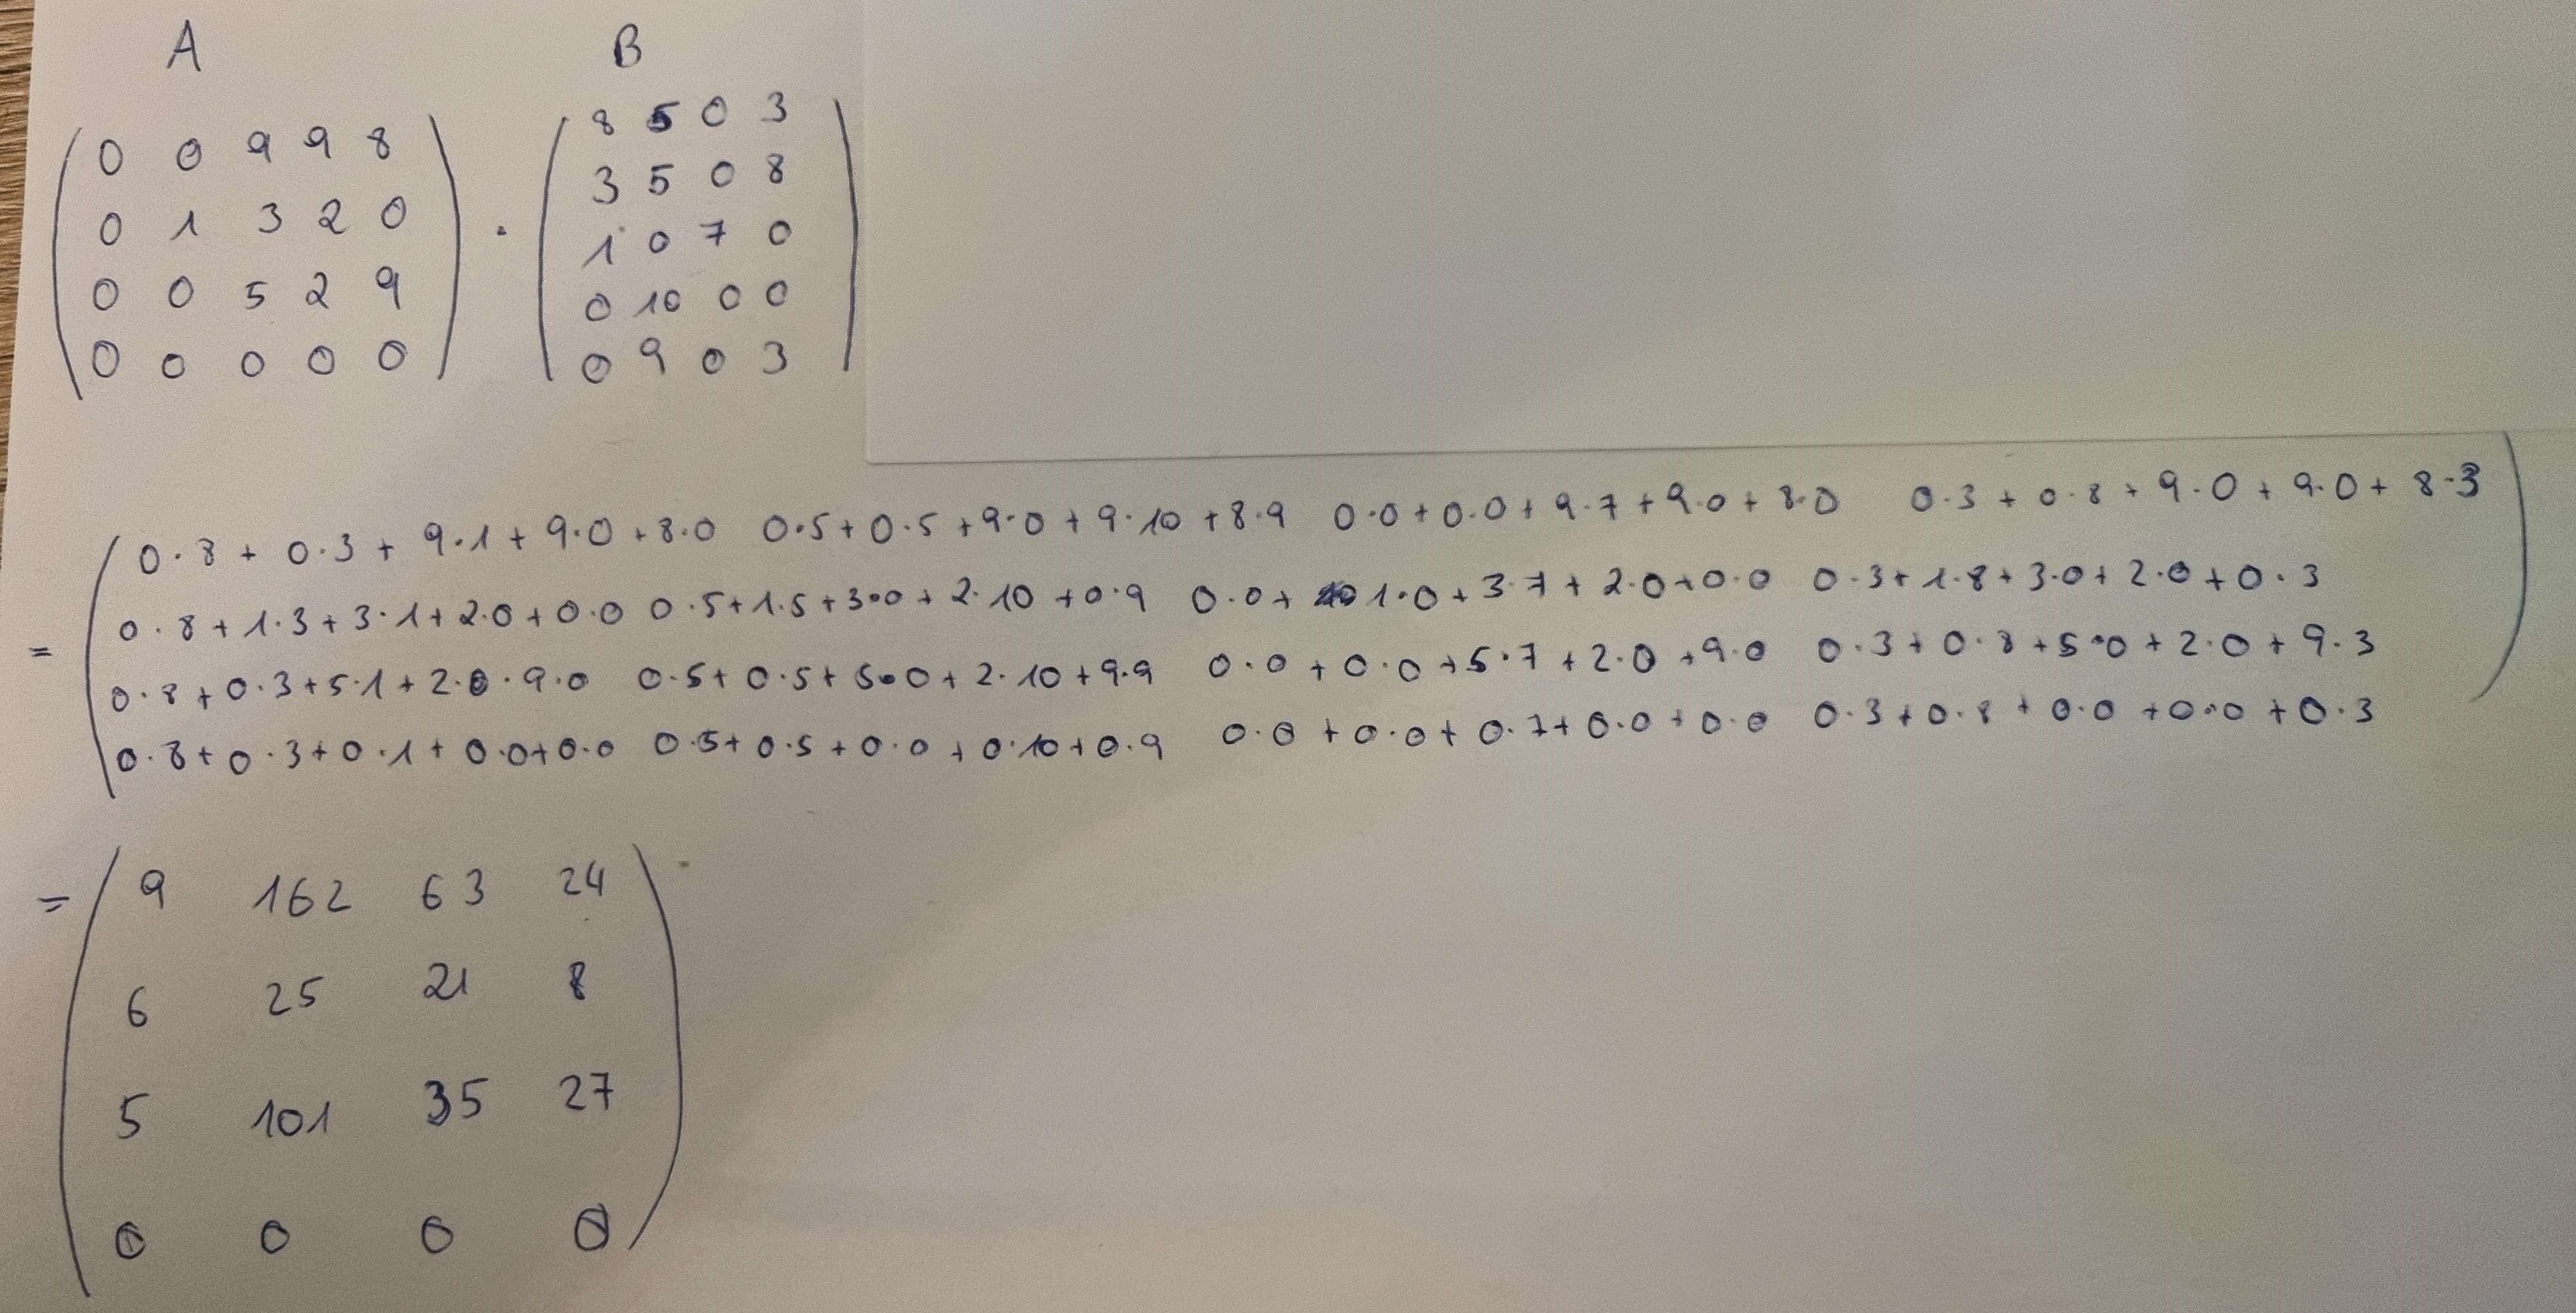 A B
0 0 9 9 8
0 1 3 2 0
0 0 5 2 9
0 0 0 0 0
·
8 5 0 3
3 5 0 8
1 0 7 0
0 10 0 0
0 9 0 3
0·8 + 0·3 + 9·1 + 9·0 + 8·0 0·5 + 0·5 + 9·0 + 9·10 + 8·9 0·0 + 0·0 + 9·7 + 9·0 + 8·0 0·3 + 0·8 + 9·0 + 9·0 + 8·3
0·8 + 1·3 + 3·1 + 2·0 + 0·0 0·5 + 1·5 + 3·0 + 2·10 + 0·9 0·0 + 1·0 + 3·7 + 2·0 + 0·0 0·3 + 1·8 + 3·0 + 2·0 + 0·3
= 0·8 + 0·3 + 5·1 + 2·0 · 9·0 0·5 + 0·5 + 5·0 + 2·10 + 9·9 0·0 + 0·0 + 5·7 + 2·0 + 9·0 0·3 + 0·8 + 5·0 + 2·0 + 9·3
0·8 + 0·3 + 0·1 + 0·0 + 0·0 0·5 + 0·5 + 0·0 + 0·10 + 0·9 0·0 + 0·0 + 0·7 + 0·0 + 0·0 0·3 + 0·8 + 0·0 + 0·0 + 0·3
= 9 162 63 24
6 25 21 8
5 101 35 27
0 0 0 0